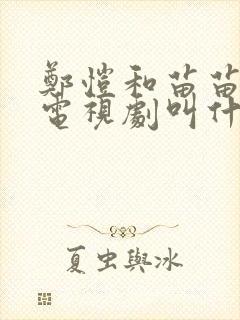 鄭愷和苗苗
電視劇叫什
夏虫與冰